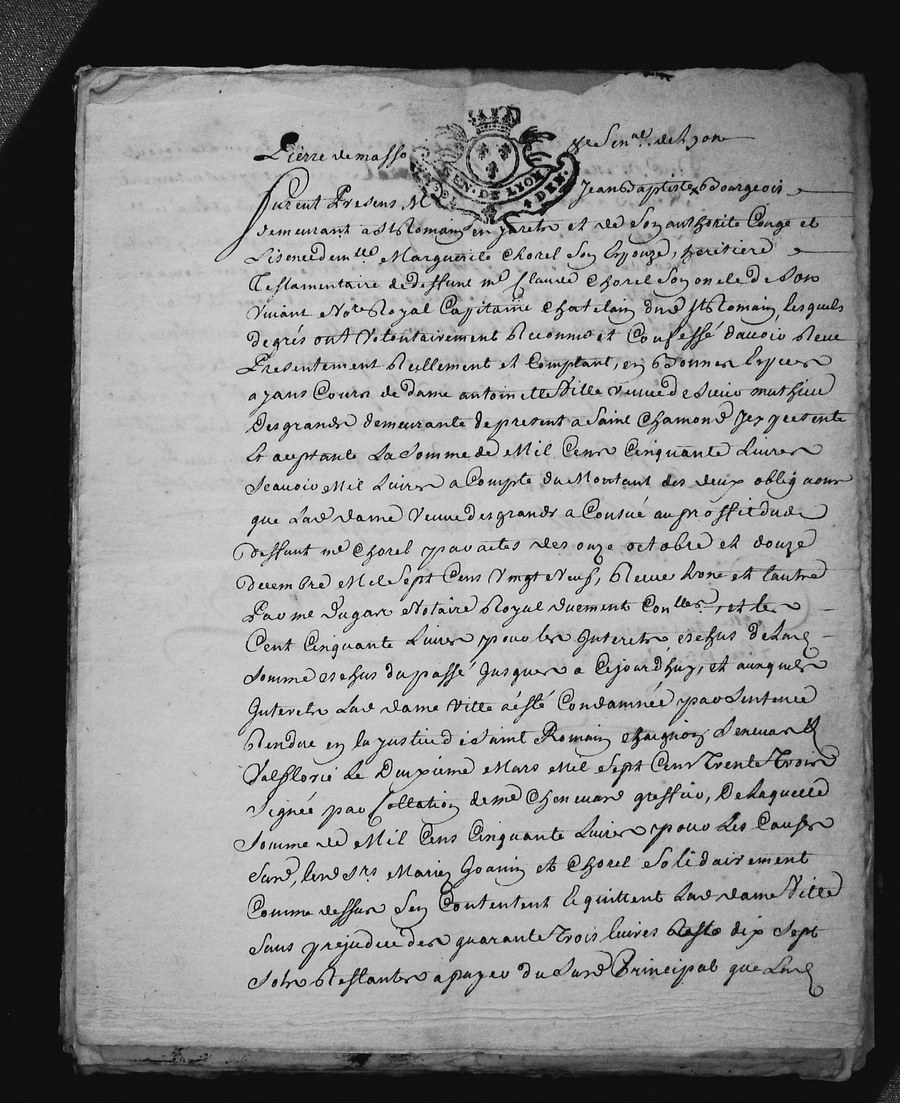 Pierre de masso &e Senal. de Lyon
GEN. DE LYON
4 DEN.
furent Presens Mr Jean Baptiste Bourgeois
demeurant a St Romain en jarets et de Son authorité Congé et
Licence demlle Marguerite Chorel Son Epouze, heritiere
Testamentaire de deffunt me Claude Chorel Son oncle de Son
Vivant Note Royal Capitaine Chatelain dud St Romain, lesquels
de grés ont Volontairement Reconnu et Confessé davoir Reçu
Presentement Reellement et Comptant, en Bonnes Espèces
ayans Cours de dame antoinette Ville veuve de Sieur mathieu
Desgrands demeurante de present a Saint Chamond Icy presente
Et aceptante La Somme de Mil Cens Cinquante Livres
Scavoir Mil Livres a Compte du Montant des deux obligations
que Lad dame Veuve desgrands a Consué au proffit dud
deffunt me Chorel par actes des onze octobre et douze
decembre Mil Sept Cens Vingt Neuf, Recue Lune et Lautre
Par me dugas Notaire Royal duement Conllés, et les
Cent Cinquante Livres pour les Interets eschus de Lad
Somme eschus du passé Jusques a Cejourd'huy, et ausquels
Interets Lad dame Ville a esté Condamnée par Sentence
Rendue en la justice de Saint Romain
Valflorie Le Deuxieme Mars Mil Sept Cens Trente Trois
Signée par Collation de me Chenevard greffier, De Laquelle
Somme de Mil Cens Cinquante Livres pour Les Causes
Susd, lesd Srs Mariés Goanin et Chorel Solidairement
Comme dessus Sen Contentent Et quittent Lad dame Ville
Sans prejudice des quarante Trois Livres dix Sept
Sols Restantes a payer du Susd Principal que Lad